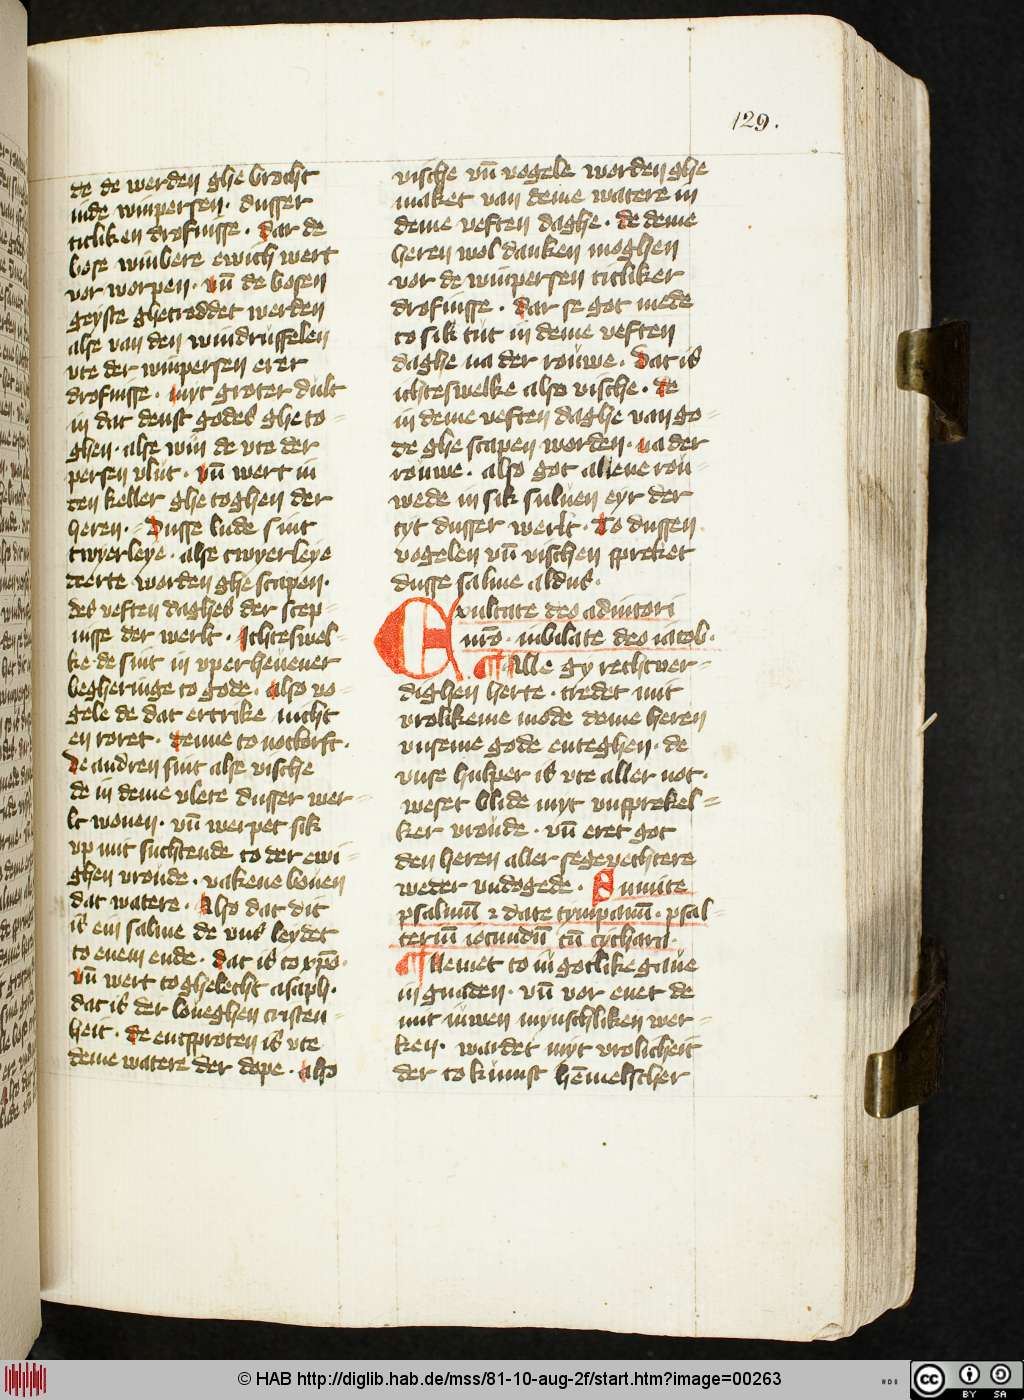 129.
de de werden ghe brocht
inde winpersen. dusser
titliken drofnisse. dar de
bose winbere ewich wert
vor worpen. vn̄ de bosen
geyste ghetreddet werden
alse van den windruffelen
vte der winpersen erer
drofnisse. myt groter dult
in dat denst godes ghe to=
ghen. alse win de vte der
persen vlut. vn̄ wert in
ten keller ghe toghen der
heren. Dusse lude sint
twyerleye. alse twyerleye
deerte worden ghe scapen.
des veften daghes der scep=
nisse der werlt. Ichteswel=
ke. de sint in vper heuener
begheringe to gode. also vo=
gele de dat ertrike nicht
en roret. denne to notdorft.
De andren sint alse vische
de in deme vlete dusser wer=
lt wonen. vn̄ werpet sik
vp mit suchtende to der ewi=
ghen vroude. vakene bouen
dat watere. Also dat dit
is ein salme de vns leydet
to enem ende. dat is to xp̄o.
vn̄ wert toghelecht asaph.
dat is der loueghen cristen=
heit. de entsproten is vte
deme watere der dope. also
vische vn̄ vogele worden ghe
maket van deme watere in
deme veften daghe. de deme
heren wol danken moghen
vor de winpersen titliker
drofnisse. dar se got mede
to sik tut in deme veften
daghe na der rouwe. dat is
ichteswelke also vische. de
in deme veften daghe van go=
de ghe scapen worden. na der
rouwe. also got allene rou=
wede in sik suluen eyr der
tyt dusser werlt. To dussen
vogelen vn̄ vischen spreket
dusse salme aldus.
Exultate deo adiutori
nr̄o. iubilate deo iacob.
¶ Alle gy rechtver=
dighen herte. tredet mit
vrolikeme mode deme heren
vnseme gode enteghen. de
vnse hulper is vte aller not.
weset blide myt vnsprekel=
ker vroude. vn̄ eret got
den heren aller segevechtere
weder vndogede. Sumite
psalmū ⁊ date tympanū. psal=
teriū iocundū cū cythara.
¶ Nemet to iu gotlike gaue
in gnaden. vn̄ vor enet de
mit iuwen mynschliken wer=
ken. wardet myt vrolicheit
der to kumst hēmelscher
© HAB http://diglib.hab.de/mss/81-10-aug-2f/start.htm?image=00263
cc BY SA